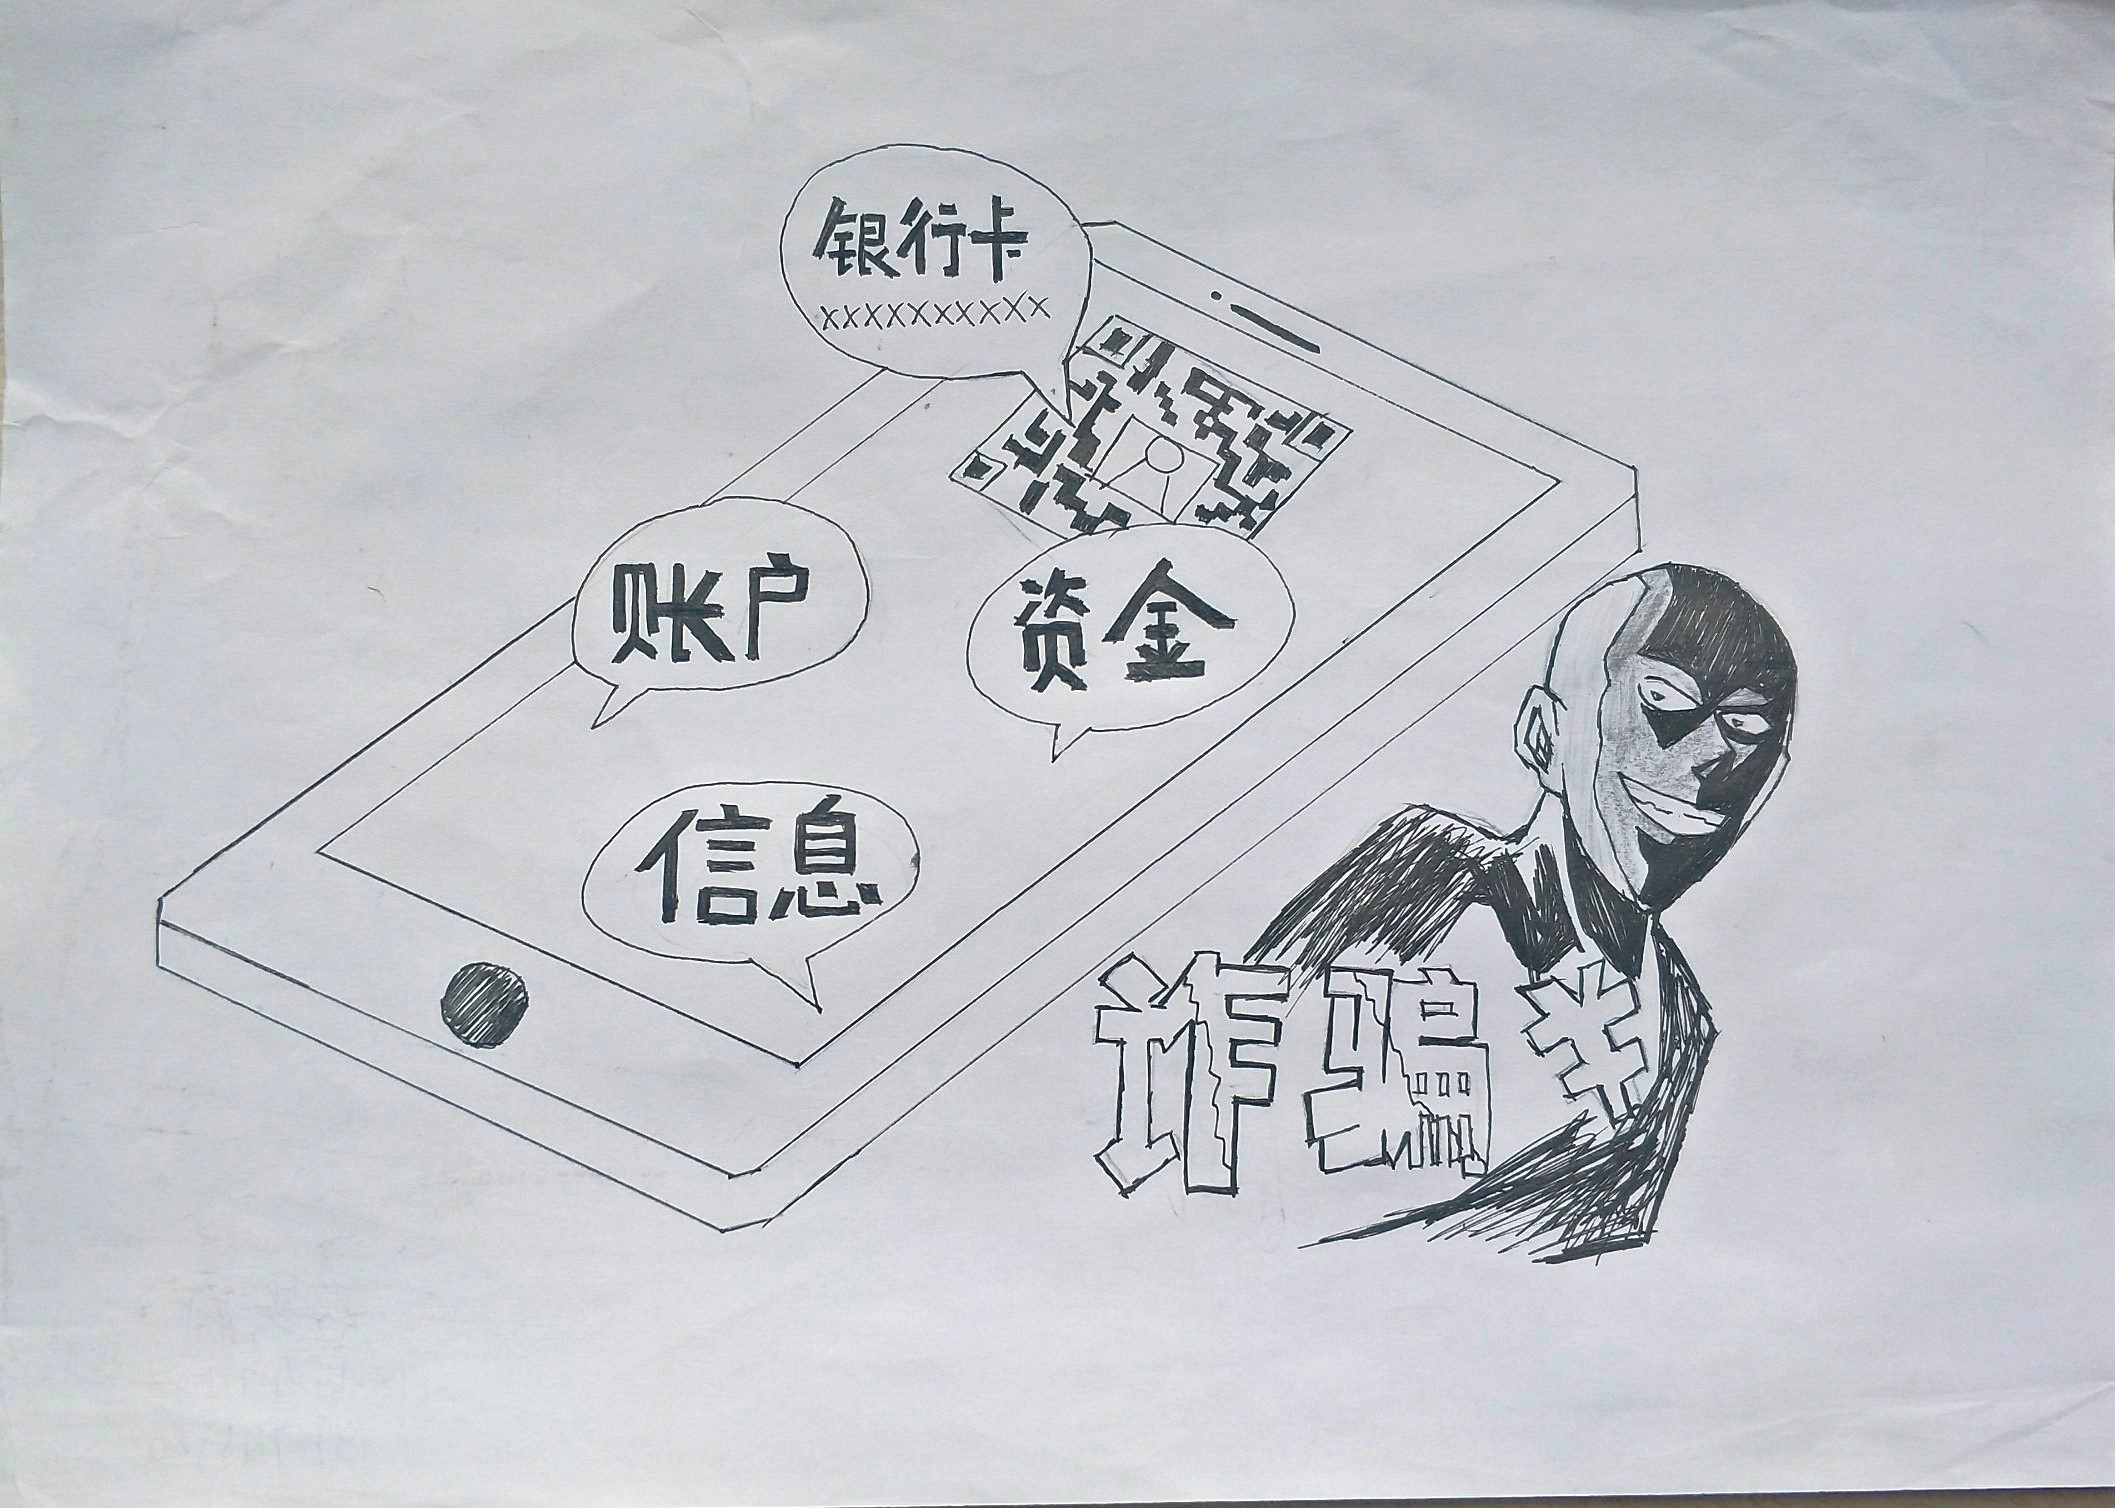 银行卡
xxxxxxxxxxx
账户
资金
信息
诈骗￥